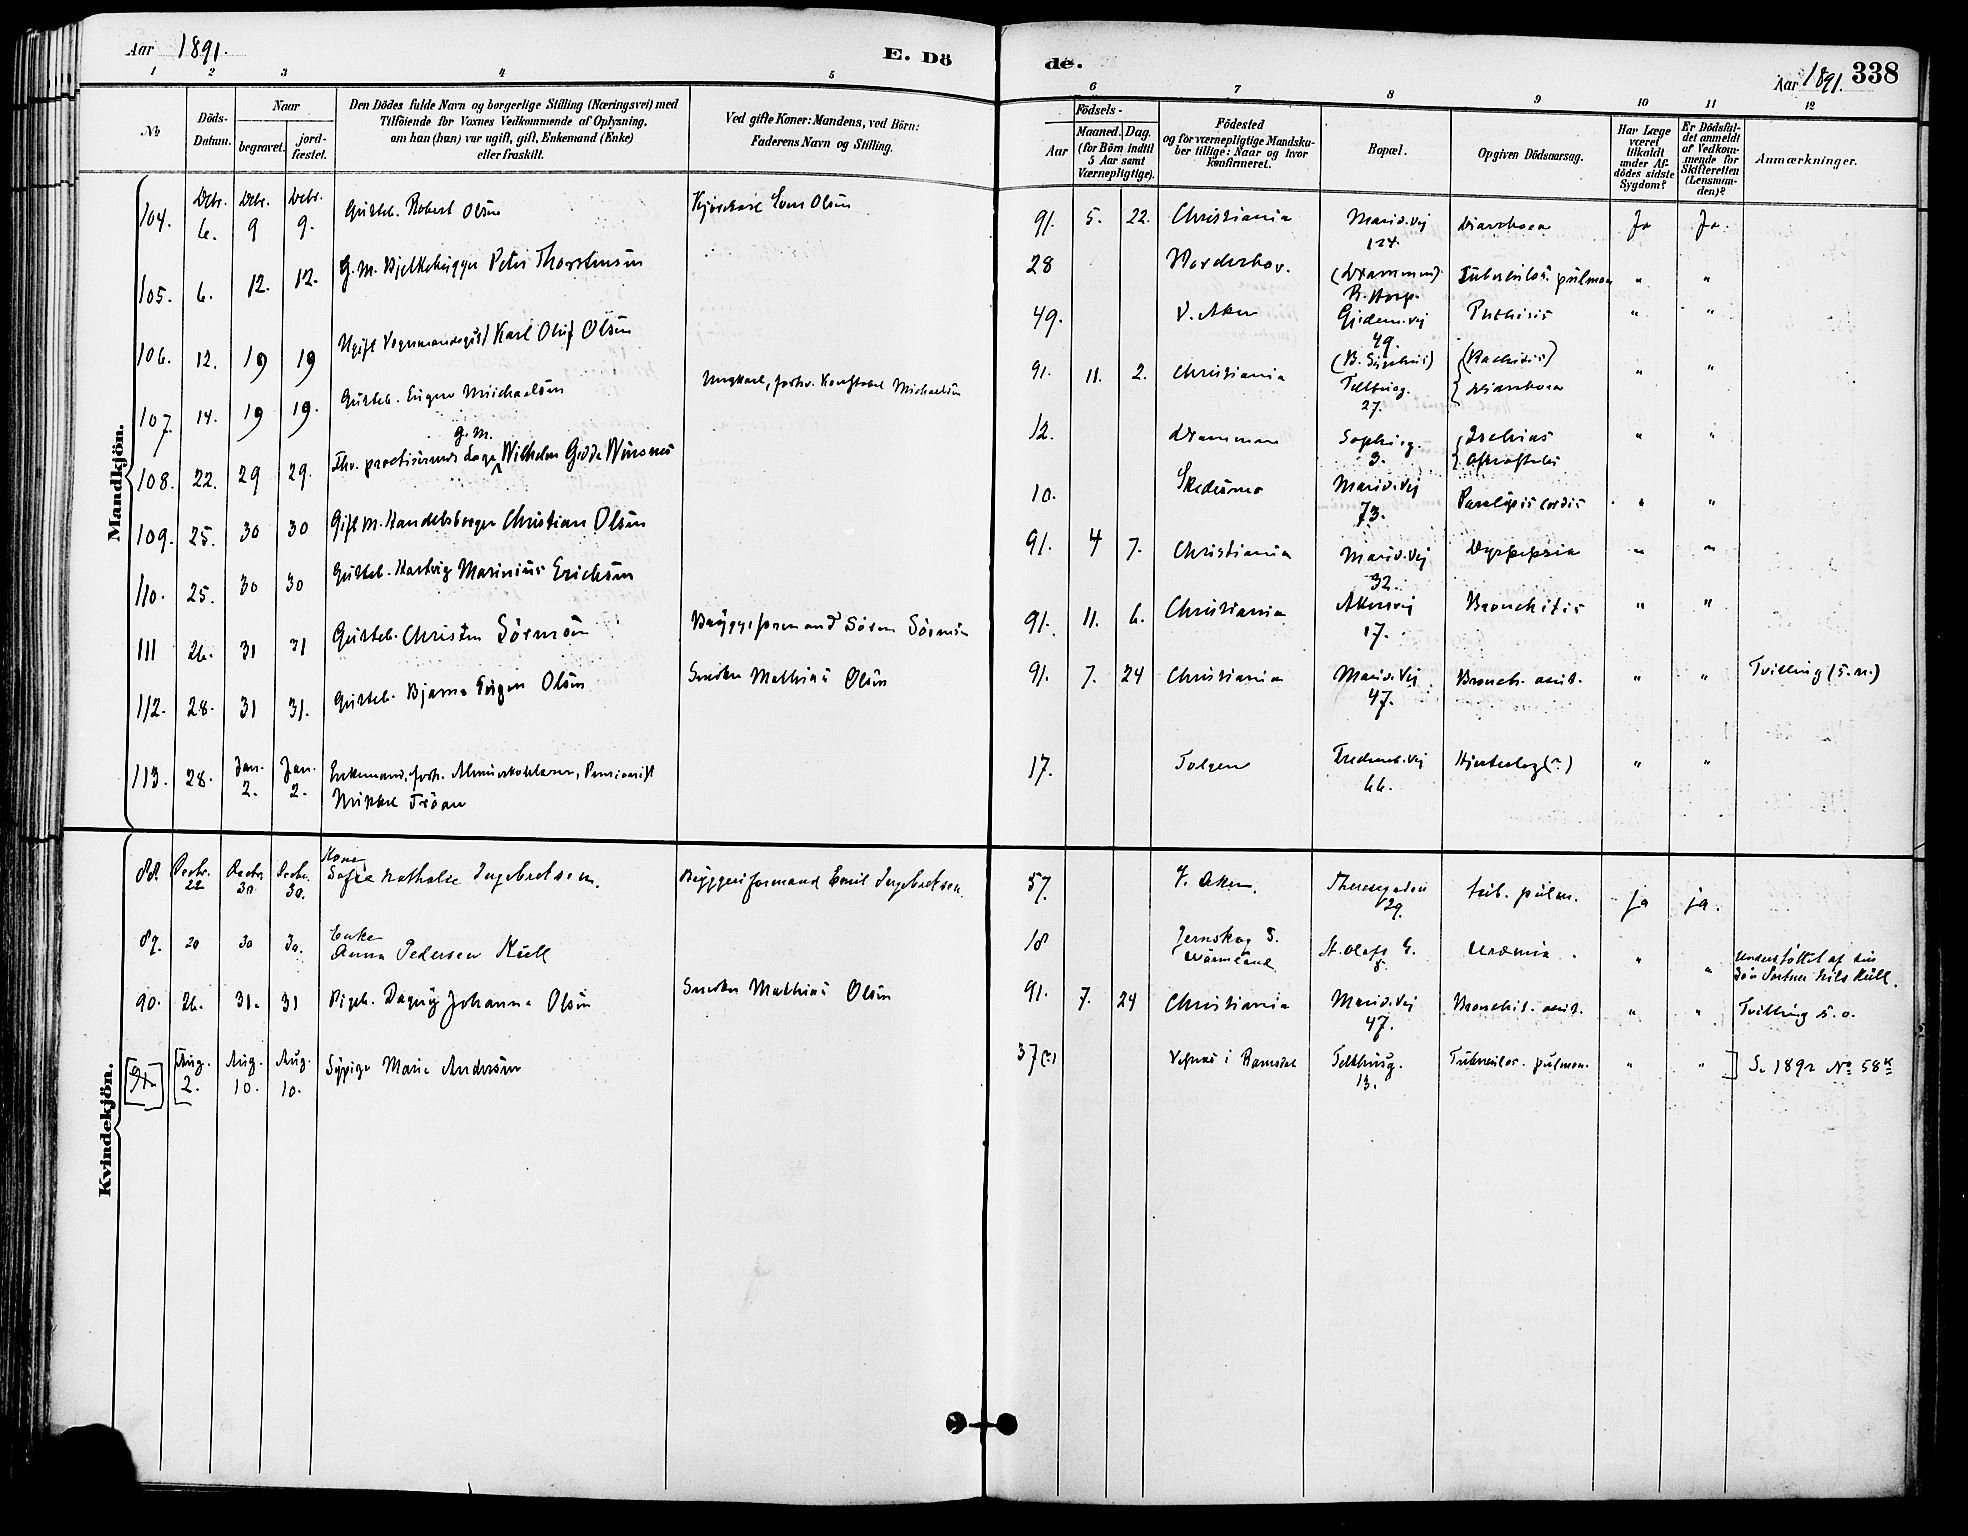 Aar 1891.
E. Dö
de.
Aar 1891. 338
1 2 3 4 5 6 7 8 9 10 11 12
No
Döds-Datum.
Naar
begravet.
jord-fæstet.
Den Dödes fulde Navn og borgerlige Stilling (Næringsvei) med
Tilföiende for Voxnes Vedkommende af Oplysning,
om han (hun) var ugift, gift, Enkemand (Enke)
eller fraskilt.
Ved gifte Koner: Mandens, ved Börn:
Faderens Navn og Stilling.
Födsels-
Aar
Maaned. Dag.
(for Börn indtil
5 Aar samt
Værnepligtige).
Födested
og for værnepligtige Mandska-
ber tillige: Naar og hvor
konfirmeret.
Bopæl.
Opgiven Dödsaarsag.
Har Læge
været
tilkaldt
under Af-
dödes sidste
Sygdom?
Er Dödsfal-
det anmeldt
af Vedkom-
mende for
Skifteretten
(Lensman-
den)?
Anmærkninger.
Mandkjön.
104. Debr. 6. Debr. 9 Debr. 9. Gutteb. Robert Olsen Olsen 91. 5. 22. Christiania Marid.vej 124. Diarrhoea Ja Ja.
105. 6. 12. 12. G. M. Peter Thorstensen 28 Norderhov. (Drammen) Tuberkulos. pulmon " "
106. 12. 19 19 Ugift Karl Oluf Olsen 49. V. Aker 49. Phthisis " "
107. 14. 19 19. Gutteb. Eugen Michaelsen Ungkarl, forhv. Konstabel Michaelsen 91. 11. 2. Christiania Telthusg. 27. (Rachitis) Diarrhoea " "
108. 22. 29 29. Fhv. practiserende Læge g. M. Wilhelm Gedde Winsnes 12. Drammen Sophieg. 3. Ischias Afkræftelse " "
109. 25. 30 30 Gift M. Handelsborger Christian Olsen 10. Skedsmo Marid.vej 73. Paralysis cordis " "
110. 25. 30 30 Gutteb. Hartvig Marinius Ericksen 91. 4 7. Christiania Marid.vej 32. Dyspepsia " "
111 26. 31 31 Gutteb. Christen Sörensen Bryggeformand Sören Sörensen 91. 11. 6. Christiania Akersvej 17. Bronchitis " "
112. 28. 31 31. Gutteb. Bjarne Olsen Snedker Mathias Olsen 91. 7. 24 Christiania Marid.vej 47. Bronch. acut. " " Tvilling (s. n.)
113. 28. Jan. 2. Jan. 2. Enkemand, forh. Almueskolelærer, Pensionist
Mikkel Tröan 17. Tolgen 66. Hjerteslag (?) " "
Kvindekjön.
88. Decbr. 22 Decbr. 30 Decbr. 30. Kone
Sofie Nathalie Ingebretsen. Bryggeriformand Emil Ingebretsen. 57. V. Aker. Theresesgaden 29. tub. pulm. ja ja.
89. 20 30 30. Enke
Anna Pedersen Kull 18 Jernskog S.
Wärmland St. Olafs G. 8. Uræmia. " " Understöttet af sin
Sön Gartner Nils Kull.
90. 26. 31. 31 Pigeb. Dagny Johanna Olsen Snedker Mathias Olsen 91. 7. 24 Christiania Marid.vej 47. Bronchit. acut. " " Tvilling s. o.
[91] [Aug. 2. Aug. 10. Aug. 10. Sypige Marie Andersen 37 (?) i Ramsdal Telthusg. 13. Tuberculos. pulmon. " " ] S. 1892 No 58 K